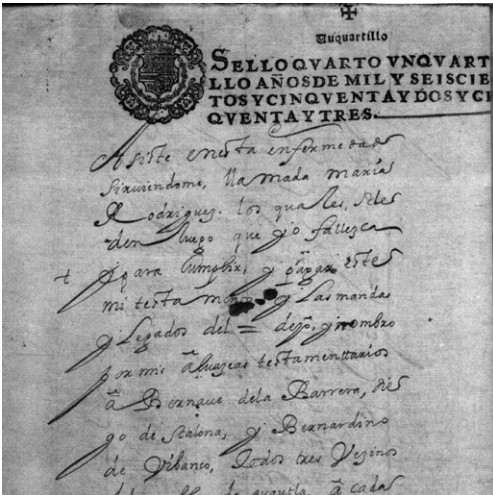 Vnquartillo
SELLO QVARTO VN QVART
LLO AÑOS DE MIL Y SEISCIE
TOS Y CINQVENTA Y DOS Y CI
QVENTA Y TRES.
Asiste en esta enfermedad
siruiendome, llamada maria
Rodriguez. los quales, seles
den luego que yo fallezca
+ y para Cumplir, y pagar este
mi testa y Las mandas
y Legados del = dejo, y nombro
por mis albaçeas testamenttarios
a de la Barrera, Die
go de Stalona, y Bernardino
de Vibanco, todos tres Vezinos
a cada